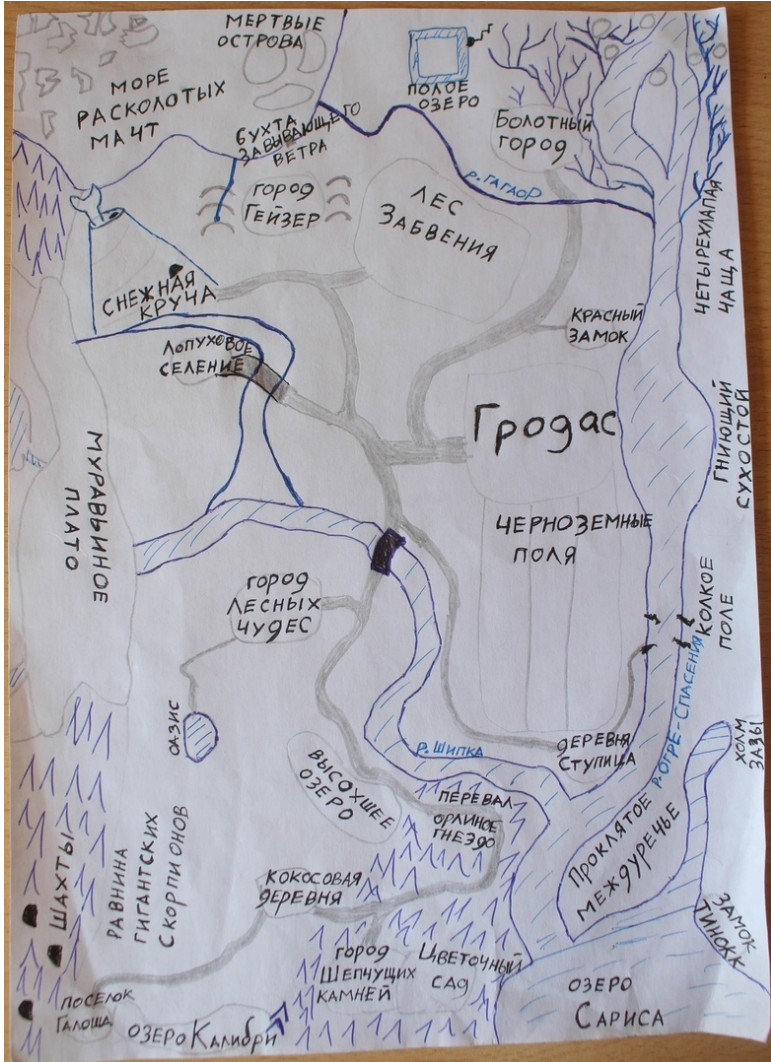 МЕРТВЫЕ
ОСТРОВА
МОРЕ
РАСКОЛОТЫХ
МАЧТ
ПОЛОЕ
ОЗЕРО
БУХТА
ЗАВЫВАЮЩЕГО
ВЕТРА
БОЛОТНЫЙ
ГОРОД
ГОРОД
ГЕЙЗЕР
ЛЕС
ЗАБВЕНИЯ
Р. ГАГАОР
ЧЕТЫРЕХЛАПАЯ
ЧАЩА
СНЕЖНАЯ
КРУЧА
КРАСНЫЙ
ЗАМОК
ЛОПУХОВОЕ
СЕЛЕНИЕ
Гродас
ГНИЮЩИЙ
СУХОСТОЙ
МУРАВЬИНОЕ
ПЛАТО
ЧЕРНОЗЕМНЫЕ
ПОЛЯ
ГОРОД
ЛЕСНЫХ
ЧУДЕС
КОЛКОЕ
ПОЛЕ
ОАЗИС
Р. ШИПКА
ДЕРЕВНЯ
СТУПИЦА
Р. ОГРЕ-СПАСЕНИЯ
ХОЛМ
ЗАЗЫ
ВЫСОХШЕЕ
ОЗЕРО
ПЕРЕВАЛ
ОРЛИНОЕ
ГНЕЗДО
ПРОКЛЯТОЕ
МЕЖДУРЕЧЬЕ
ШАХТЫ
РАВНИНА
ГИГАНТСКИХ
СКОРПИОНОВ
КОКОСОВАЯ
ДЕРЕВНЯ
ЗАМОК
ТИНОКК
ГОРОД
ШЕПЧУЩИХ
КАМНЕЙ
ЦВЕТОЧНЫЙ
САД
ПОСЕЛОК
ГАЛОША
ОЗЕРО КАЛИБРИ
ОЗЕРО
САРИСА